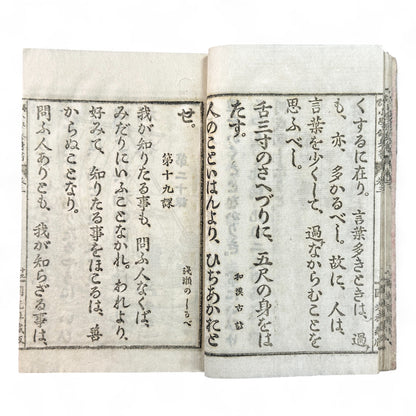 くするに在り。言葉多きときは、過
も、亦、多かるべし。故に、人は、
言葉を少くして、過なからむことを
思ふべし。
和漢古諺
舌三寸のさへづりに、五尺の身をは
たす。
人のこといはんより、ひぢあかおとせ。
第十九課
淺瀬のしるべ
我が知りたる事も、問ふ人なくば、
みだりにいふことなかれ。われより、
好みて、知りたる事をほこるは、善
からぬことなり。
問ふ人ありとも、我が知らざる事は、